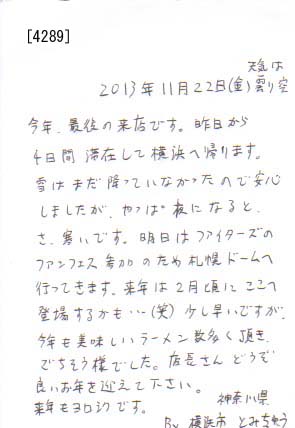 [4289]
天気は
2013年11月22日(金)曇り空
今年、最後の来店です。昨日から
4日間 滞在して横浜へ帰ります。
雪はまだ降っていなかったので安心
しましたが、やっぱ夜になると、
さ、寒いです。明日はファイターズの
ファンフェス参加のため札幌ドームへ
行ってきます。来年は2月頃にここへ
登場するかも…(笑) 少し早いですが、
今年も美味しいラーメン数多く頂き、
でちそう様でした。店長さん どうぞ
良いお年を迎えて下さい。
来年もヨロシクです。
神奈川県
By 横浜市 とみちゅう